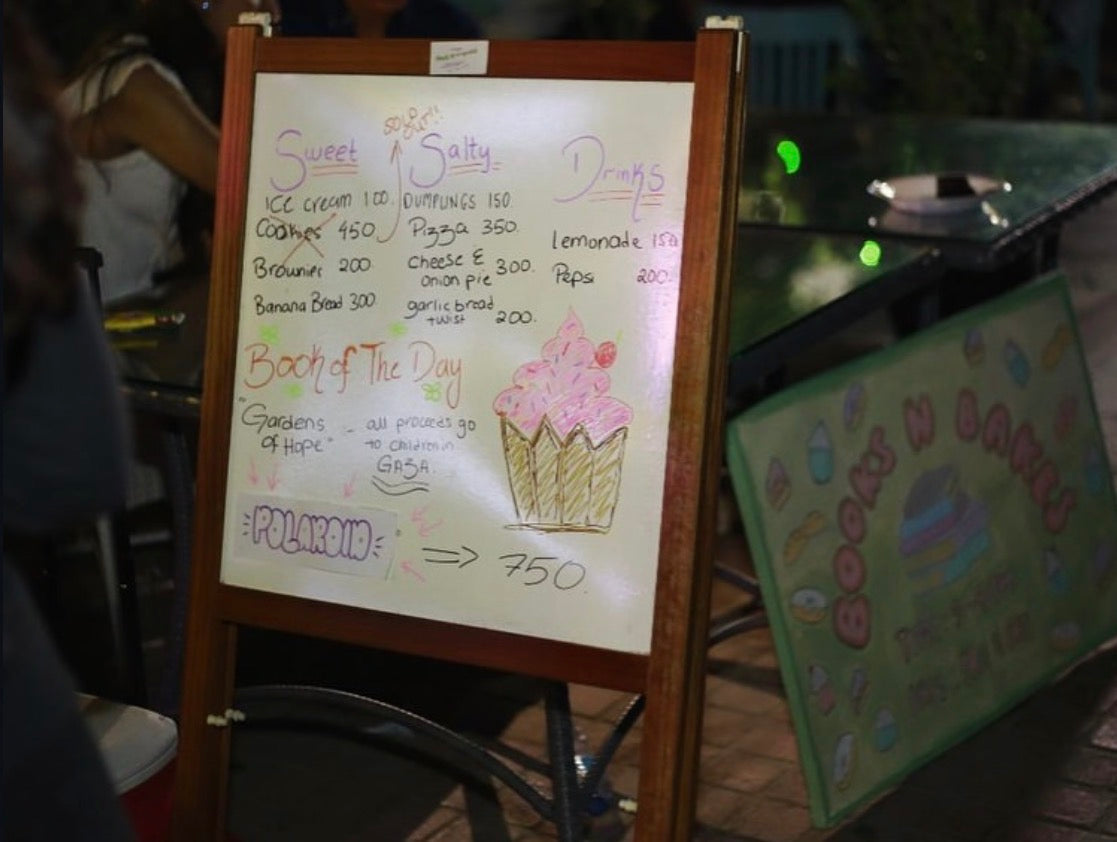 SOLD
OUT!!
Sweet
ICE cream 100.
Cookies 450
Brownies 200
Banana Bread 300
Salty
DUMPLINGS 150
Pizza 350.
cheese &
onion pie 300.
garlic bread
twist 200.
Drinks
lemonade 150
Pepsi 200.
Book of The Day
"Gardens
of Hope" - all proceeds go
to children in
GAZA.
POLAROID => 750.
BOOKS N BAKES